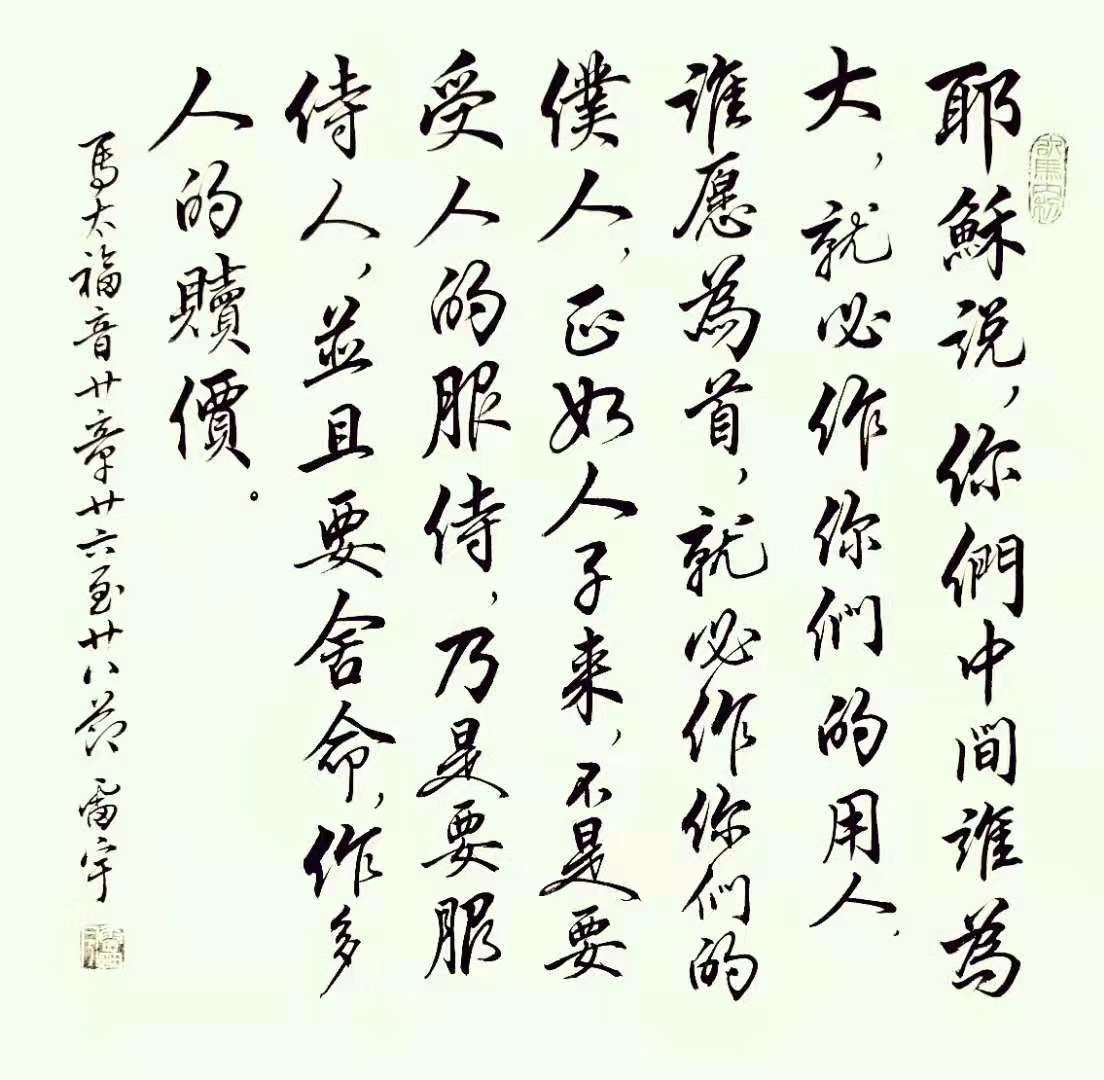 耶穌说，你們中间誰為
大，就必作你们的用人，
谁愿為首，就必作你们的
僕人，正如人子来，不是要
受人的服侍，乃是要服
侍人，並且要舍命，作多
人的贖價。
馬太福音廿章廿六至廿八节 雷宇